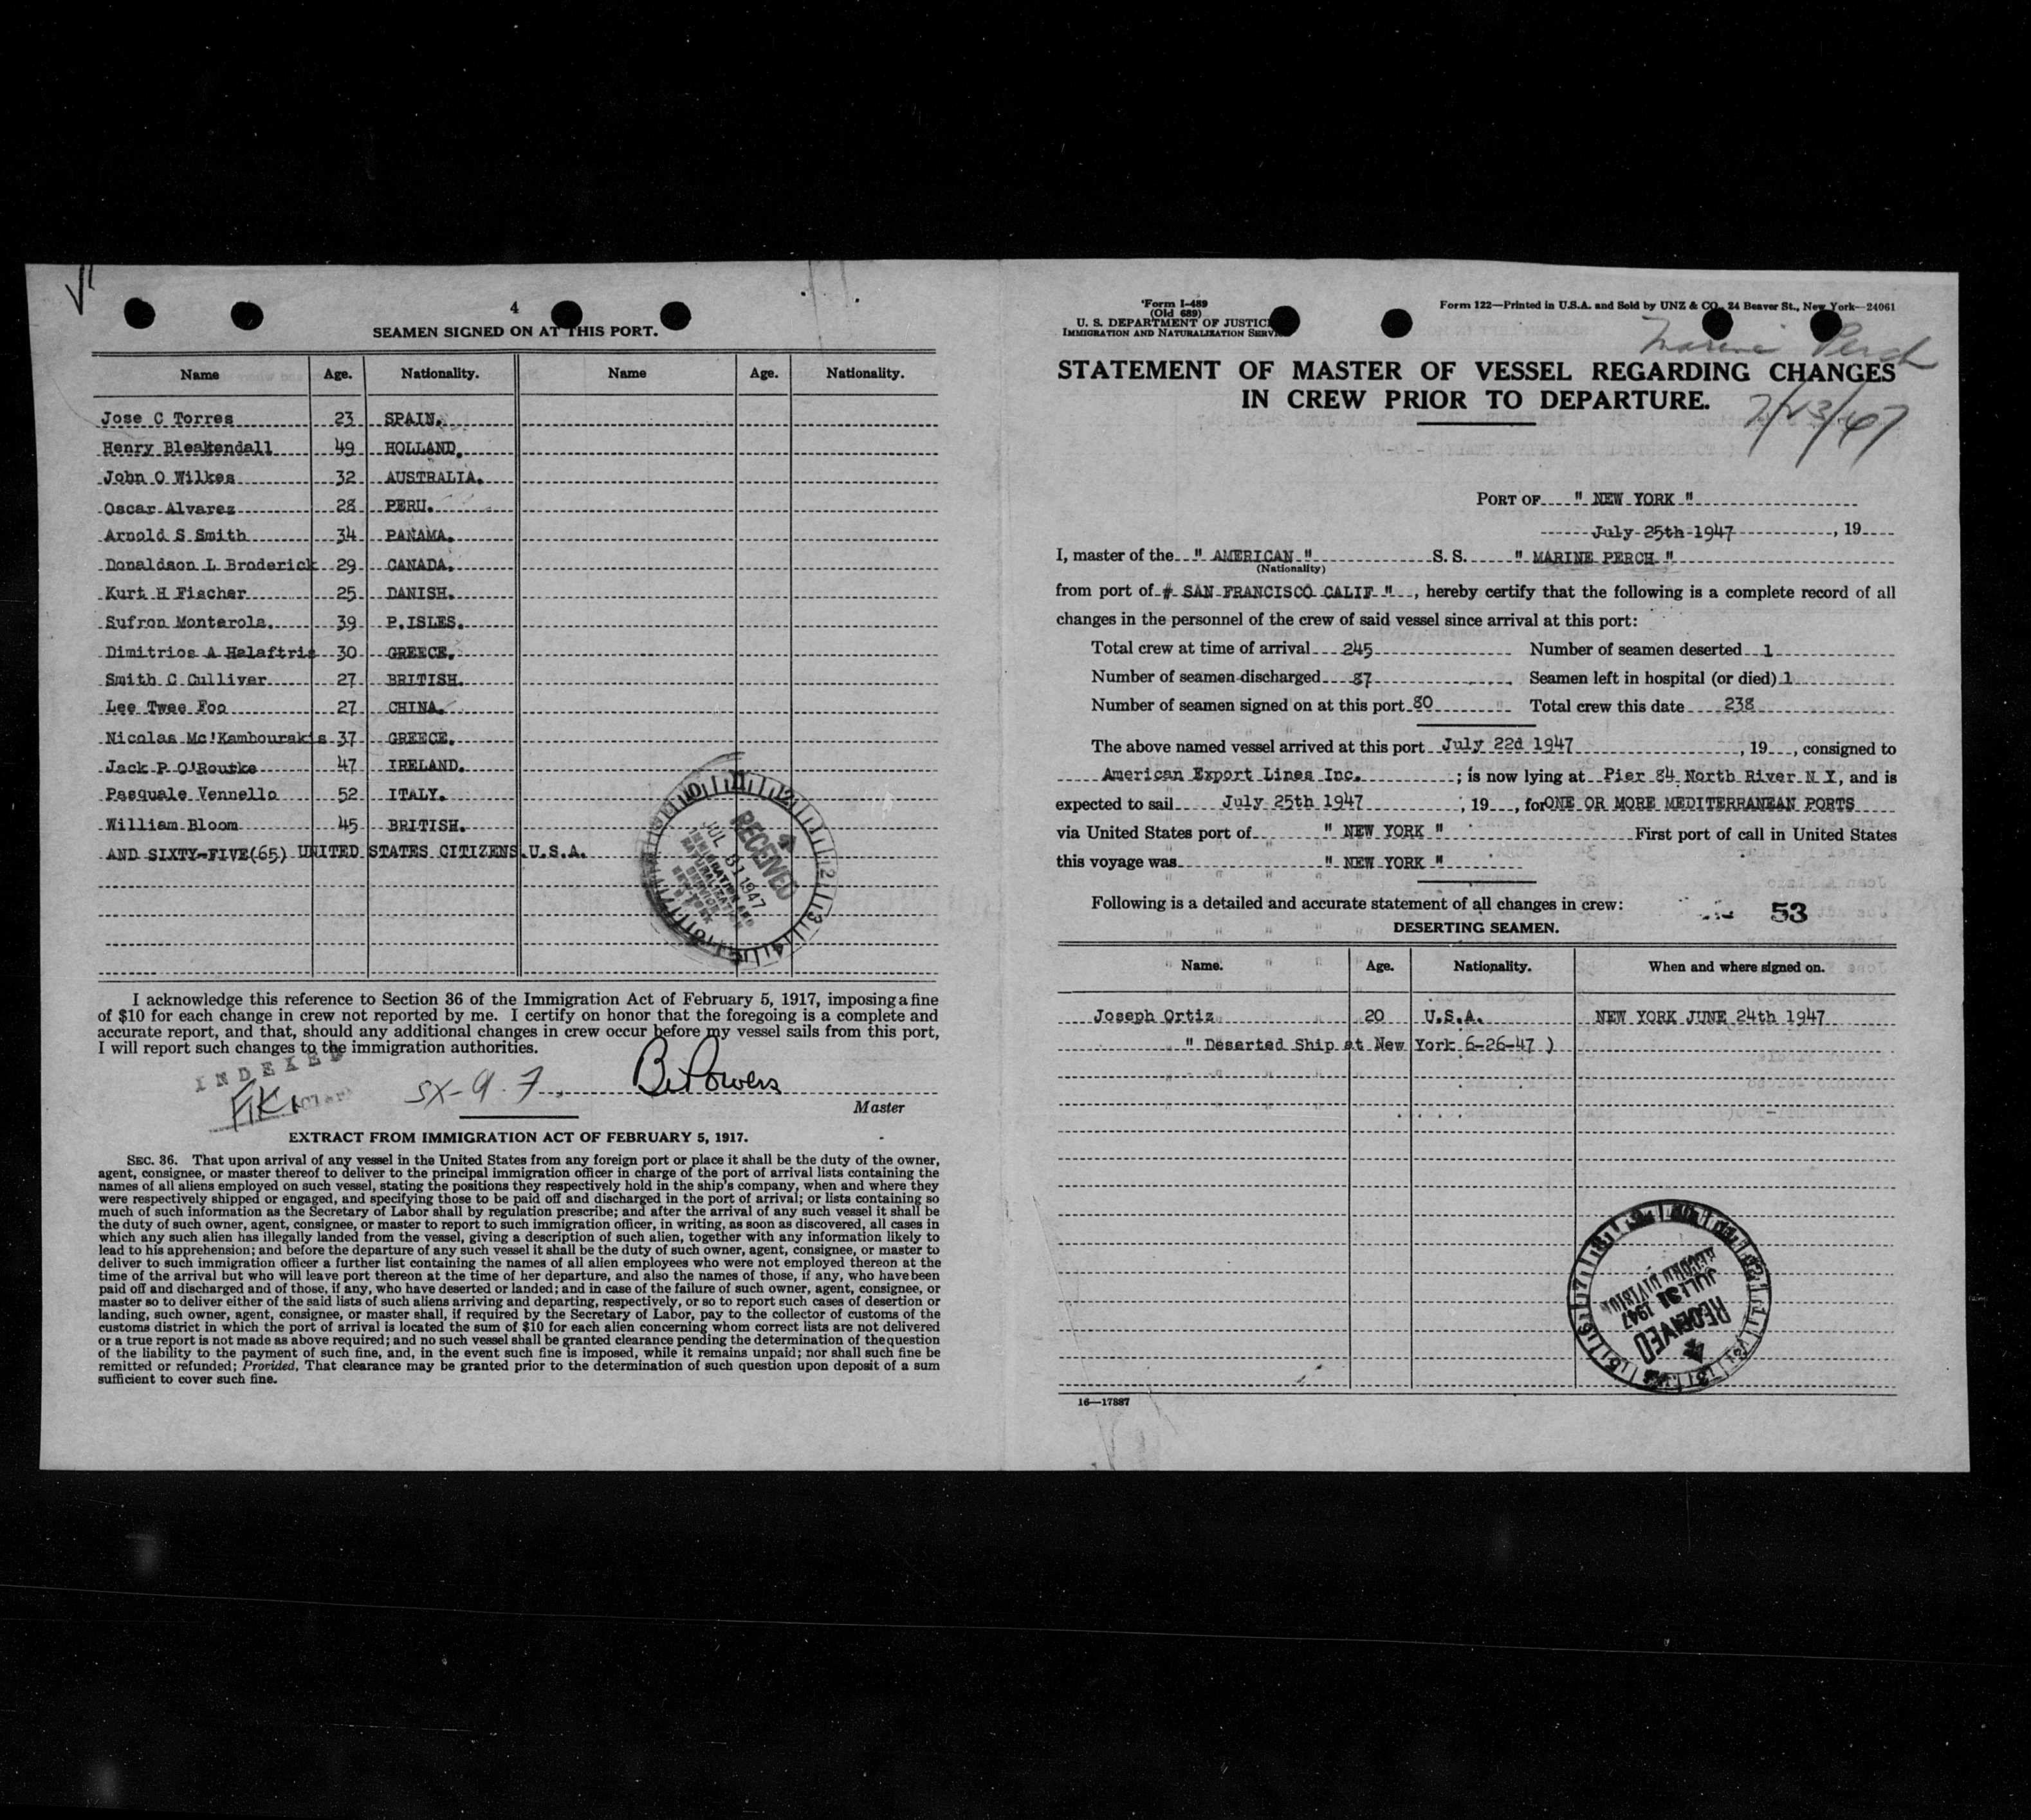 4
SEAMEN SIGNED ON AT THIS PORT.
Name Age. Nationality. Name Age. Nationality.
Jose C Torres 23 SPAIN.
Henry Bleakendall 49 HOLLAND.
John O Wilkes 32 AUSTRALIA.
Oscar Alvarez 28 PERU.
Arnold S Smith 34 PANAMA.
Donaldson L Broderick 29 CANADA.
Kurt H Fischer 25 DANISH.
Sufron Monterola. 39 P.ISLES.
Dimitrios A Halaftris 30 GREECE.
Smith C Culliver 27 BRITISH.
Lee Twee Foo 27 CHINA.
Nicolas Mc'Kambourakis 37 GREECE.
Jack P O'Rourke 47 IRELAND.
Pasquale Vennello 52 ITALY.
William Bloom 45 BRITISH.
AND SIXTY-FIVE(65) UNITED STATES CITIZENS.U.S.A.
RECEIVED
JUL 31 1947
IMMIGRATION AND
NATURALIZATION
SERVICE
NEW YORK
I acknowledge this reference to Section 36 of the Immigration Act of February 5, 1917, imposing a fine
of $10 for each change in crew not reported by me. I certify on honor that the foregoing is a complete and
accurate report, and that, should any additional changes in crew occur before my vessel sails from this port,
I will report such changes to the immigration authorities.
INDEXED
SX-9.7 B. Powers
Master
EXTRACT FROM IMMIGRATION ACT OF FEBRUARY 5, 1917.
SEC. 36. That upon arrival of any vessel in the United States from any foreign port or place it shall be the duty of the owner,
agent, consignee, or master thereof to deliver to the principal immigration officer in charge of the port of arrival lists containing the
names of all aliens employed on such vessel, stating the positions they respectively hold in the ship's company, when and where they
were respectively shipped or engaged, and specifying those to be paid off and discharged in the port of arrival; or lists containing so
much of such information as the Secretary of Labor shall by regulation prescribe; and after the arrival of any such vessel it shall be
the duty of such owner, agent, consignee, or master to report to such immigration officer, in writing, as soon as discovered, all cases in
which any such alien has illegally landed from the vessel, giving a description of such alien, together with any information likely to
lead to his apprehension; and before the departure of any such vessel it shall be the duty of such owner, agent, consignee, or master to
deliver to such immigration officer a further list containing the names of all alien employees who were not employed thereon at the
time of the arrival but who will leave port thereon at the time of her departure, and also the names of those, if any, who have been
paid off and discharged and of those, if any, who have deserted or landed; and in case of the failure of such owner, agent, consignee, or
master so to deliver either of the said lists of such aliens arriving and departing, respectively, or so to report such cases of desertion or
landing, such owner, agent, consignee, or master shall, if required by the Secretary of Labor, pay to the collector of customs of the
customs district in which the port of arrival is located the sum of $10 for each alien concerning whom correct lists are not delivered
or a true report is not made as above required; and no such vessel shall be granted clearance pending the determination of the question
of the liability to the payment of such fine, and, in the event such fine is imposed, while it remains unpaid; nor shall such fine be
remitted or refunded; Provided, That clearance may be granted prior to the determination of such question upon deposit of a sum
sufficient to cover such fine.
Form I-489
(Old 689)
U. S. DEPARTMENT OF JUSTICE
IMMIGRATION AND NATURALIZATION SERVICE
Form 122—Printed in U.S.A. and Sold by UNZ & CO., 24 Beaver St., New York—24061
Marine Perch
STATEMENT OF MASTER OF VESSEL REGARDING CHANGES
IN CREW PRIOR TO DEPARTURE.
7/23/47
PORT OF " NEW YORK "
July 25th 1947, 19
I, master of the " AMERICAN " S. S. " MARINE PERCH "
(Nationality)
from port of # SAN FRANCISCO CALIF ", hereby certify that the following is a complete record of all
changes in the personnel of the crew of said vessel since arrival at this port:
Total crew at time of arrival 245 Number of seamen deserted 1
Number of seamen discharged 87 Seamen left in hospital (or died) 1
Number of seamen signed on at this port 80 Total crew this date 238
The above named vessel arrived at this port July 22d 1947, 19, consigned to
American Export Lines Inc. ; is now lying at Pier 84 North River N Y, and is
expected to sail July 25th 1947, 19, for ONE OR MORE MEDITERRANEAN PORTS
via United States port of " NEW YORK " First port of call in United States
this voyage was " NEW YORK "
Following is a detailed and accurate statement of all changes in crew:
53
DESERTING SEAMEN.
Name. Age. Nationality. When and where signed on.
Joseph Ortiz 20 U.S.A. NEW YORK JUNE 24th 1947
" Deserted Ship at New York 6-26-47 )
RECEIVED
JUL 31 1947
RECORD DIVISION
16—17887